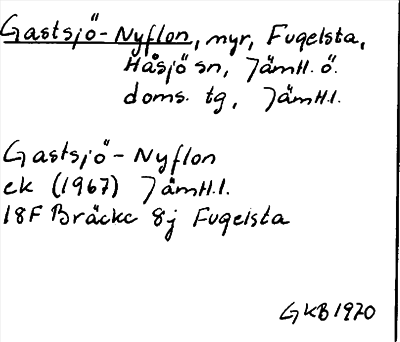 Gastsjö-Nyflon, myr, Fugelsta,
Håsjö sn, Jämtl. ö.
doms. tg, Jämtl.l.
Gastsjö-Nyflon
ek (1967) Jämtl.l.
18F Bräcke 8j Fugelsta
GKB 1970